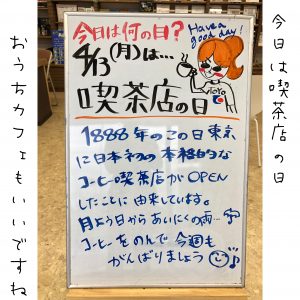 今日は喫茶店の日
今日は何の日?
Have a
good day!
4/13(月)は…
TOYO
喫茶店の日
1888年のこの日東京
に日本初の本格的な
コーヒー喫茶店がOPEN
したことに由来しています。
月よう日からあいにくの雨…
コーヒーをのんで今週も
がんばりましょう
おうちカフェもいいですね